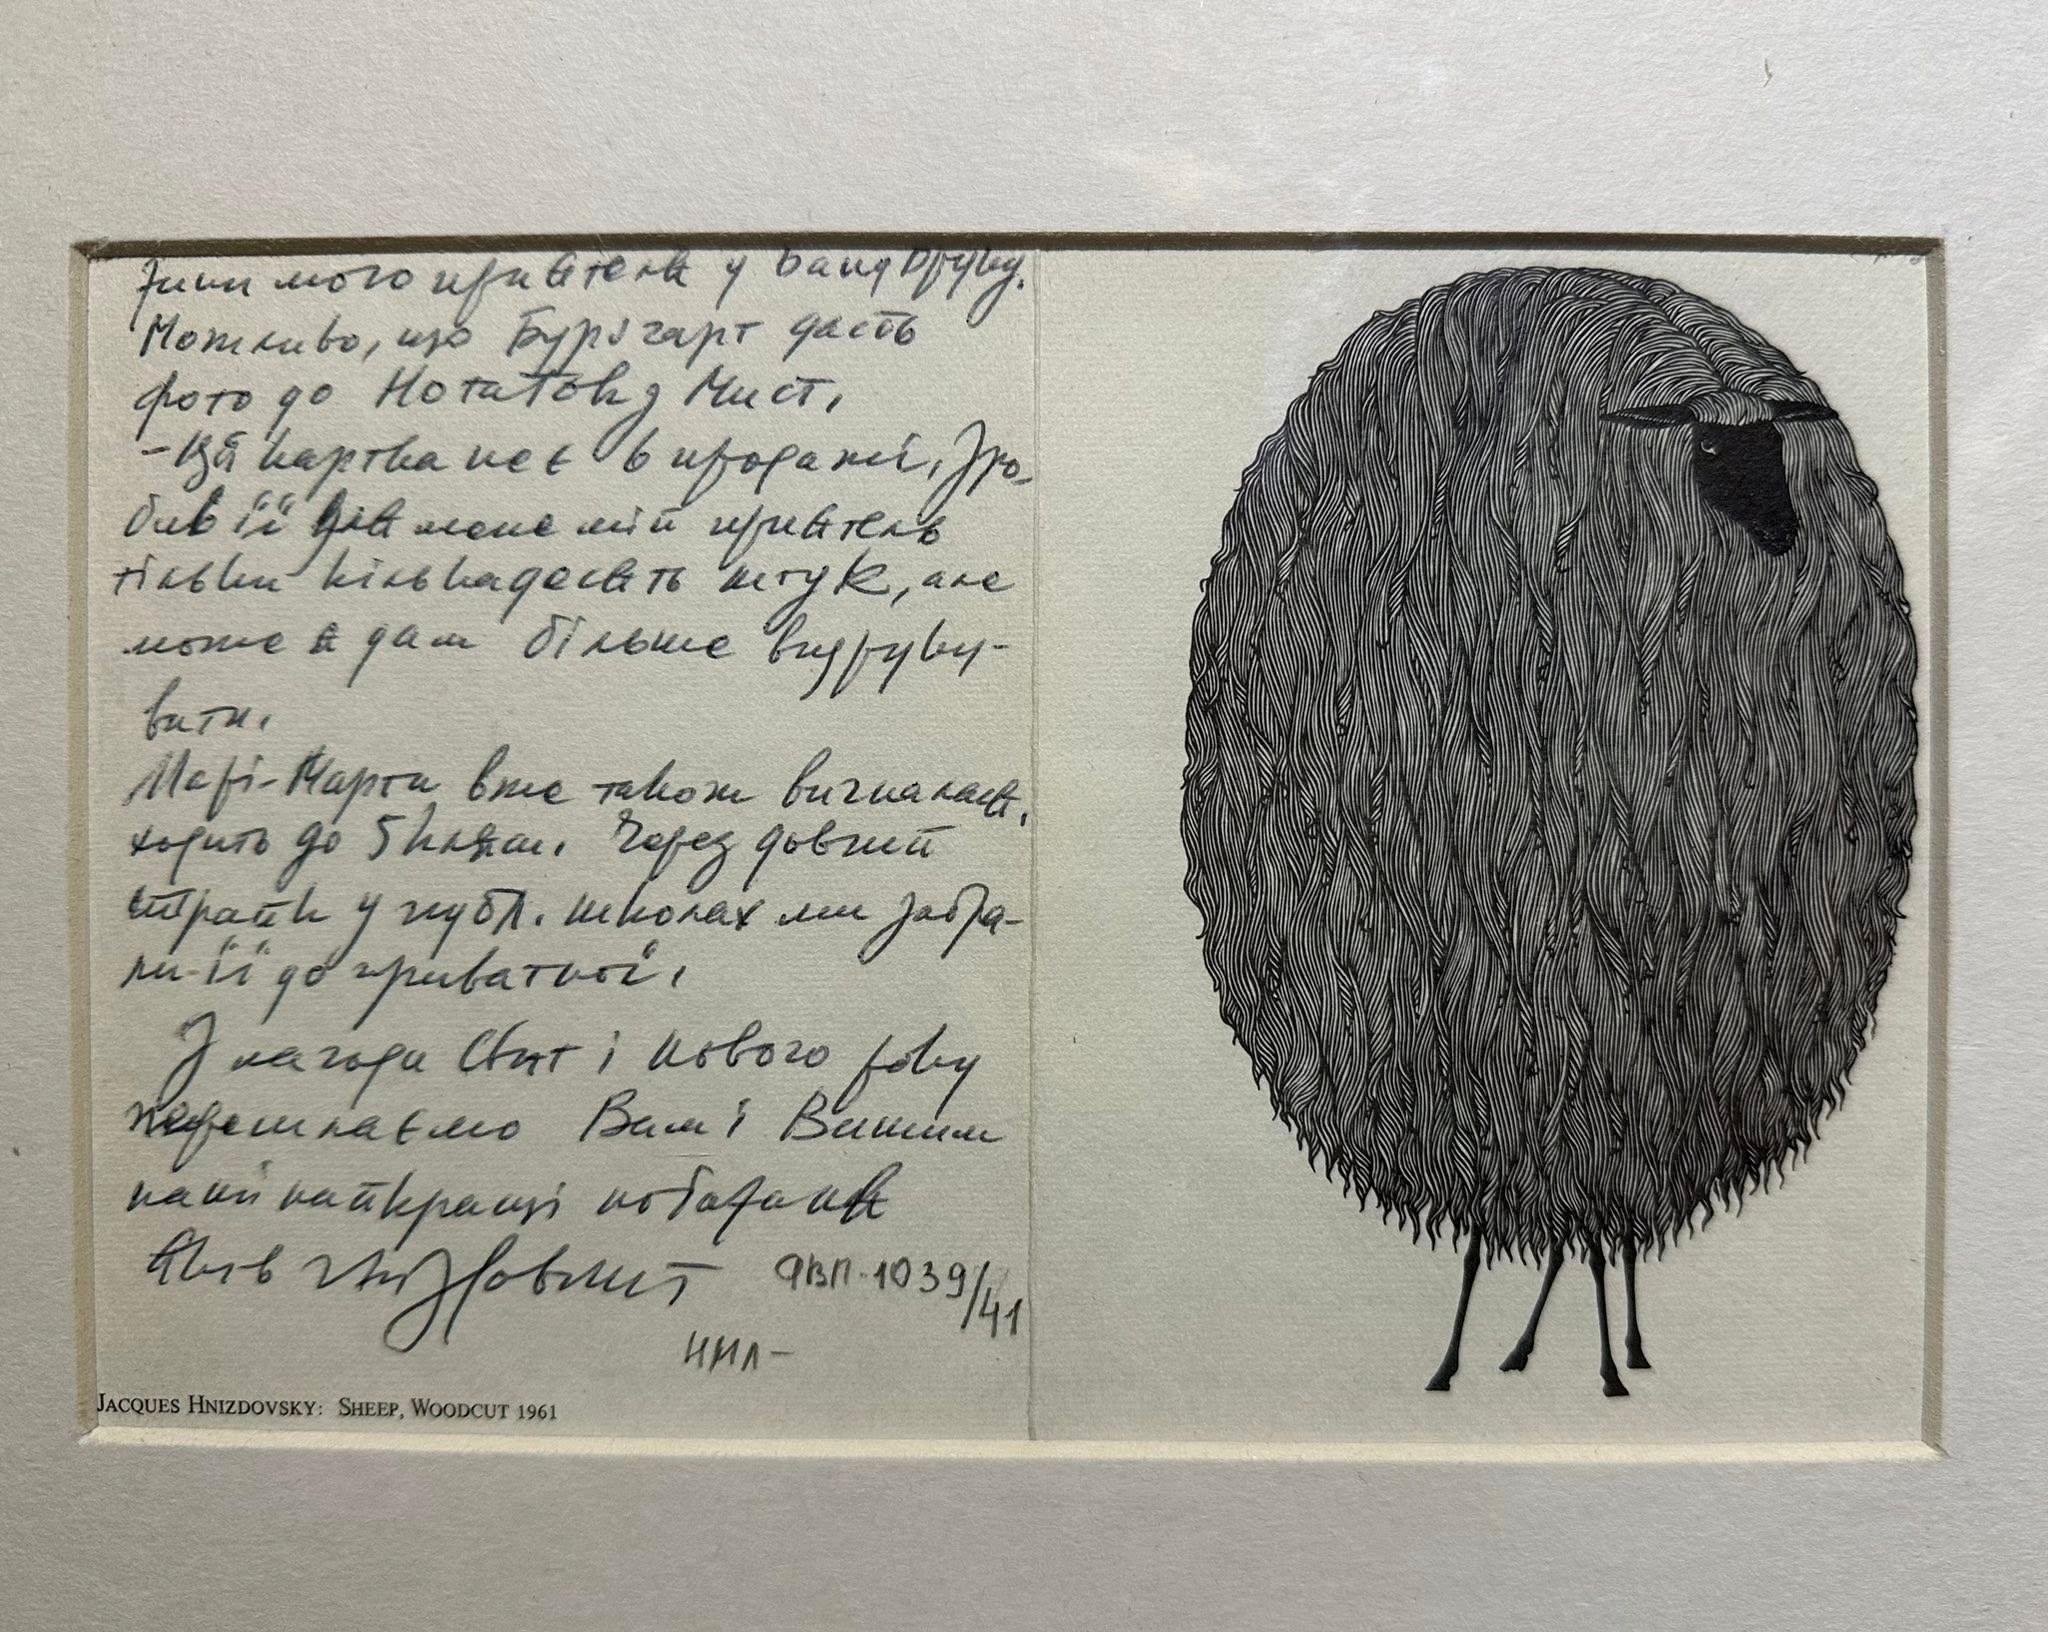 мого приятеля у
Можливо, що Бургарт дасть
фото до Нотаток з Мист.
– Ця картка не є в продажі, Зро-
бив її для мене мій приятель
тільки кільканадесять штук, але
може я дам більше видруку-
вати.
Марі-Марта вже також вигналась,
ходить до 5 кляси. Через довгий
страйк у публ. школах ми забра-
ли її до приватної.
З нагоди Свят і нового року
пересилаємо Вам і Вашим
наші найкращі побажання
Яків Гніздовський ЯВП-1039/41
НМЛ–
JACQUES HNIZDOVSKY: SHEEP, WOODCUT 1961